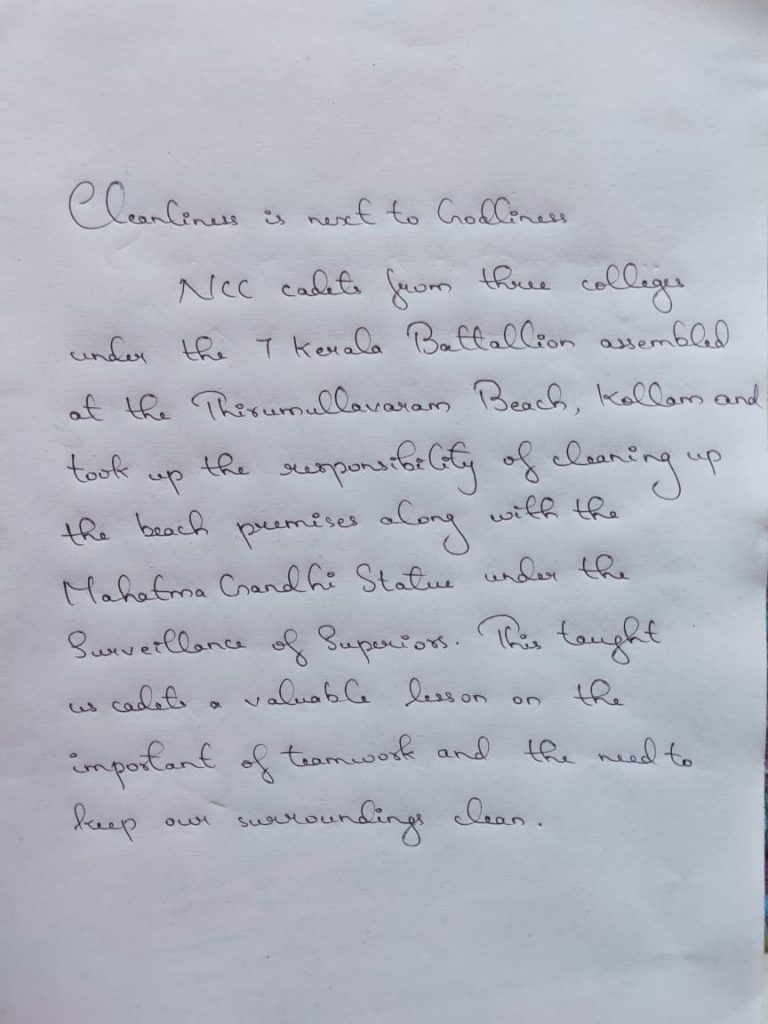 Cleanliness is next to Godliness
NCC cadets from three colleges
under the 7 Kerala Battallion assembled
at the Thirumullavaram Beach, Kollam and
took up the responsibility of cleaning up
the beach premises along with the
Mahatma Gandhi Statue under the
Surveillance of Superiors. This taught
us cadets a valuable lesson on the
important of teamwork and the need to
keep our surroundings clean.